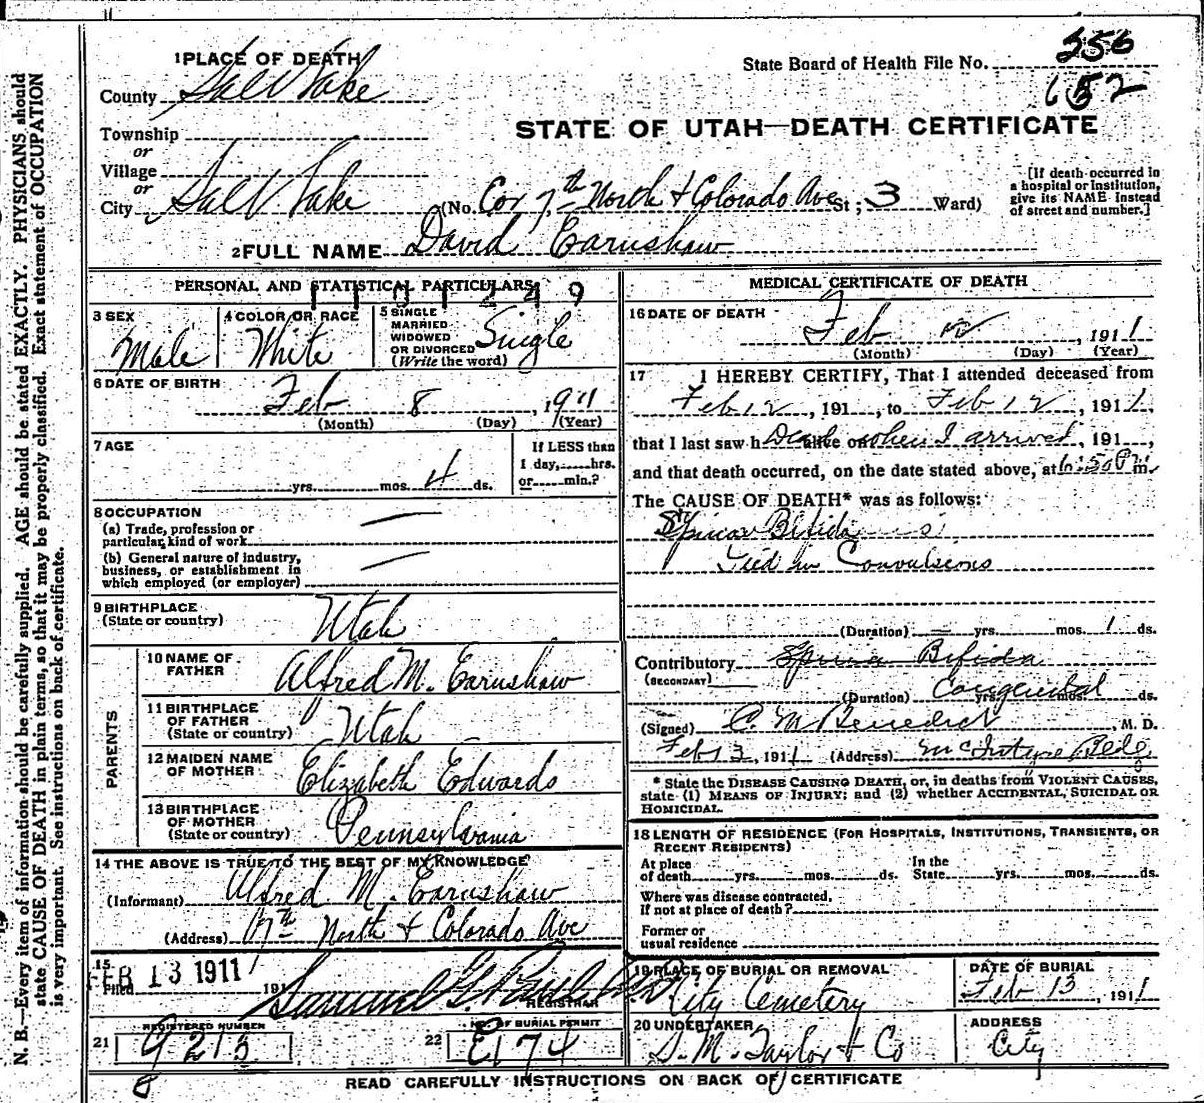 1 PLACE OF DEATH
County Salt Lake
Township
or
Village
or
City Salt Lake (No. Cor 7th North & Colorado Ave St; 3 Ward)
State Board of Health File No. 356
652
STATE OF UTAH—DEATH CERTIFICATE
[If death occurred in
a hospital or institution,
give its NAME instead
of street and number.]
2 FULL NAME David Earnshaw
PERSONAL AND STATISTICAL PARTICULARS
1101249
3 SEX
Male
4 COLOR OR RACE
White
5 SINGLE
MARRIED
WIDOWED
OR DIVORCED
(Write the word)
Single
6 DATE OF BIRTH
Feb 8, 1911
(Month) (Day) (Year)
7 AGE
yrs. mos. 4 ds.
If LESS than
1 day, hrs.
or min.?
8 OCCUPATION
(a) Trade, profession or
particular kind of work —
(b) General nature of industry,
business, or establishment in
which employed (or employer) —
9 BIRTHPLACE
(State or country)
Utah
PARENTS
10 NAME OF
FATHER
Alfred M. Earnshaw
11 BIRTHPLACE
OF FATHER
(State or country)
Utah
12 MAIDEN NAME
OF MOTHER
Elizabeth Edwards
13 BIRTHPLACE
OF MOTHER
(State or country)
Pennsylvania
14 THE ABOVE IS TRUE TO THE BEST OF MY KNOWLEDGE
(Informant) Alfred M. Earnshaw
(Address) 7th North & Colorado Ave
15
Filed FEB 13 1911 191
Samuel G.
REGISTRAR
REGISTERED NUMBER
21
NO. OF BURIAL PERMIT
22 E174
MEDICAL CERTIFICATE OF DEATH
16 DATE OF DEATH
Feb 12, 1911
(Month) (Day) (Year)
17 I HEREBY CERTIFY, That I attended deceased from
Feb 12, 191, to Feb 12, 1911,
that I last saw h Dead alive on when I arrived, 191,
and that death occurred, on the date stated above, at 6:50 P m.
The CAUSE OF DEATH* was as follows:
Spina Bifida
Died in Convulsions
(Duration) — yrs. mos. 1 ds.
Contributory Spina Bifida
(SECONDARY)
(Duration) yrs. mos. ds. Congenital
(Signed) C. M. Benedict, M. D.
Feb 13, 1911 (Address) McIntyre Bldg
* State the DISEASE CAUSING DEATH, or, in deaths from VIOLENT CAUSES,
state (1) MEANS OF INJURY; and (2) whether ACCIDENTAL, SUICIDAL OR
HOMICIDAL.
18 LENGTH OF RESIDENCE (FOR HOSPITALS, INSTITUTIONS, TRANSIENTS, OR
RECENT RESIDENTS)
At place
of death yrs. mos. ds.
In the
State yrs. mos. ds.
Where was disease contracted,
if not at place of death?
Former or
usual residence
19 PLACE OF BURIAL OR REMOVAL
City Cemetery
DATE OF BURIAL
Feb 13, 1911
20 UNDERTAKER
S. M. Taylor & Co
ADDRESS
City
READ CAREFULLY INSTRUCTIONS ON BACK OF CERTIFICATE
N. B.—Every item of information should be carefully supplied. AGE should be stated EXACTLY. PHYSICIANS should
state CAUSE OF DEATH in plain terms, so that it may be properly classified. Exact statement of OCCUPATION
is very important. See instructions on back of certificate.